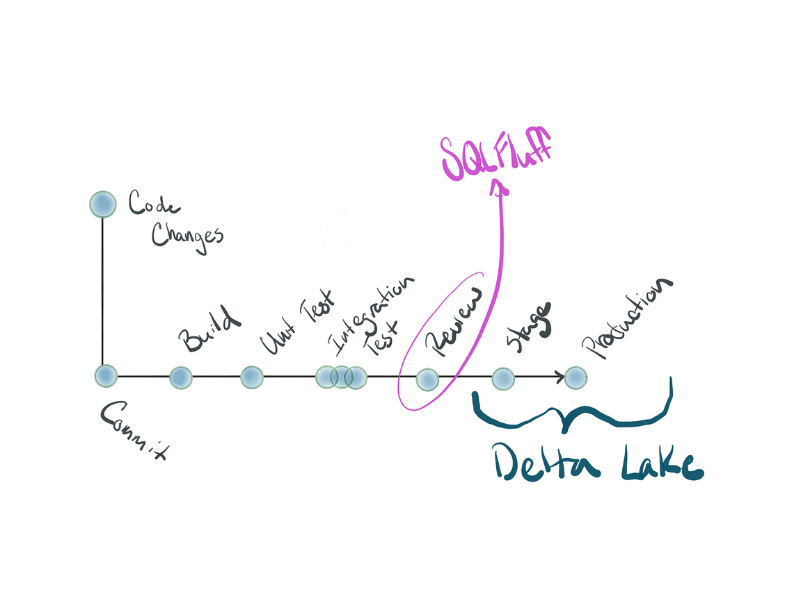 SQLFluff
Code
Changes
Build
Unit Test
Integration
Test
Review
Stage
Production
Commit
Delta Lake